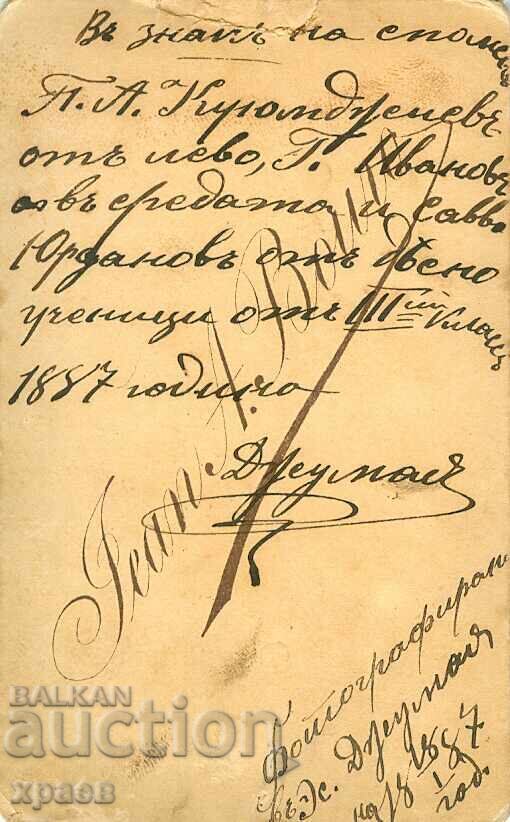 Въ знакъ на спомен
П. А. Куюмджиевъ
отъ лево, Г. Ивановъ
въ средата и Савва
Юрдановъ отъ дѣсно
ученици отъ IIIий класъ
1887 година
Джумая
Jean A.
Фотографиран
въ Эс. Джумая
на 18 1887
год.
BALKAN
auction
храев